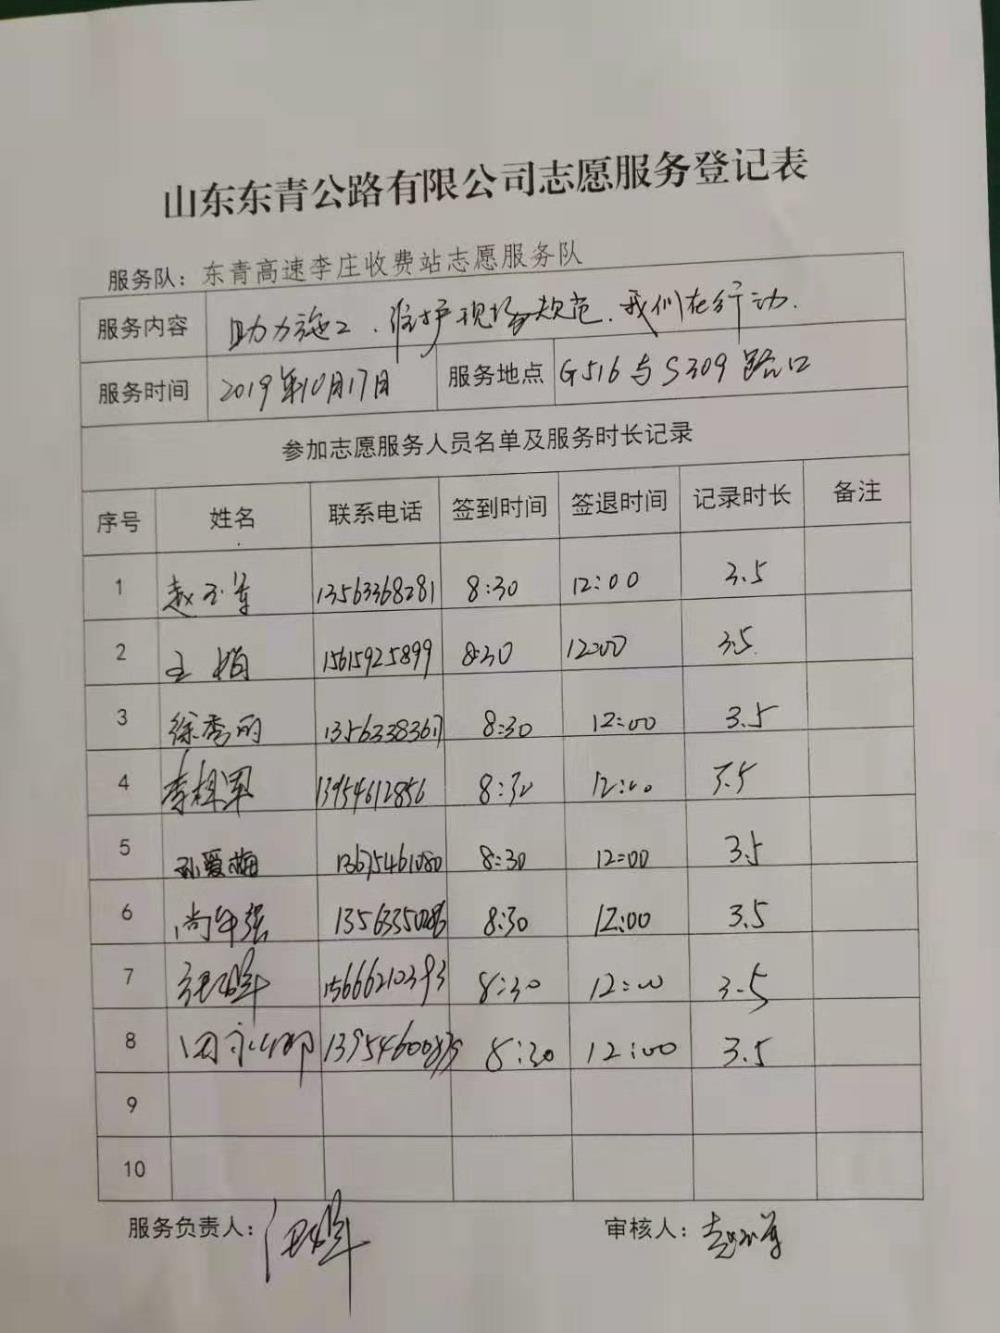 山东东青公路有限公司志愿服务登记表
服务队：东青高速李庄收费站志愿服务队
服务内容 助力施工、维护现场规范、我们在行动.
服务时间 2019年10月17日 服务地点 G516与S309路口
参加志愿服务人员名单及服务时长记录
序号 姓名 联系电话 签到时间 签退时间 记录时长 备注
1 赵玉军 13563368281 8:30 12:00 3.5
2 王 15615925899 8:30 12:00 3.5
3 徐秀丽 13563383617 8:30 12:00 3.5
4 李桂军 13954612856 8:30 12:00 3.5
5 孙爱梅 13675461080 8:30 12:00 3.5
6 尚华强 8:30 12:00 3.5
7 15666210393 8:30 12:00 3.5
8 8:30 12:00 3.5
9
10
服务负责人： 审核人：赵玉军